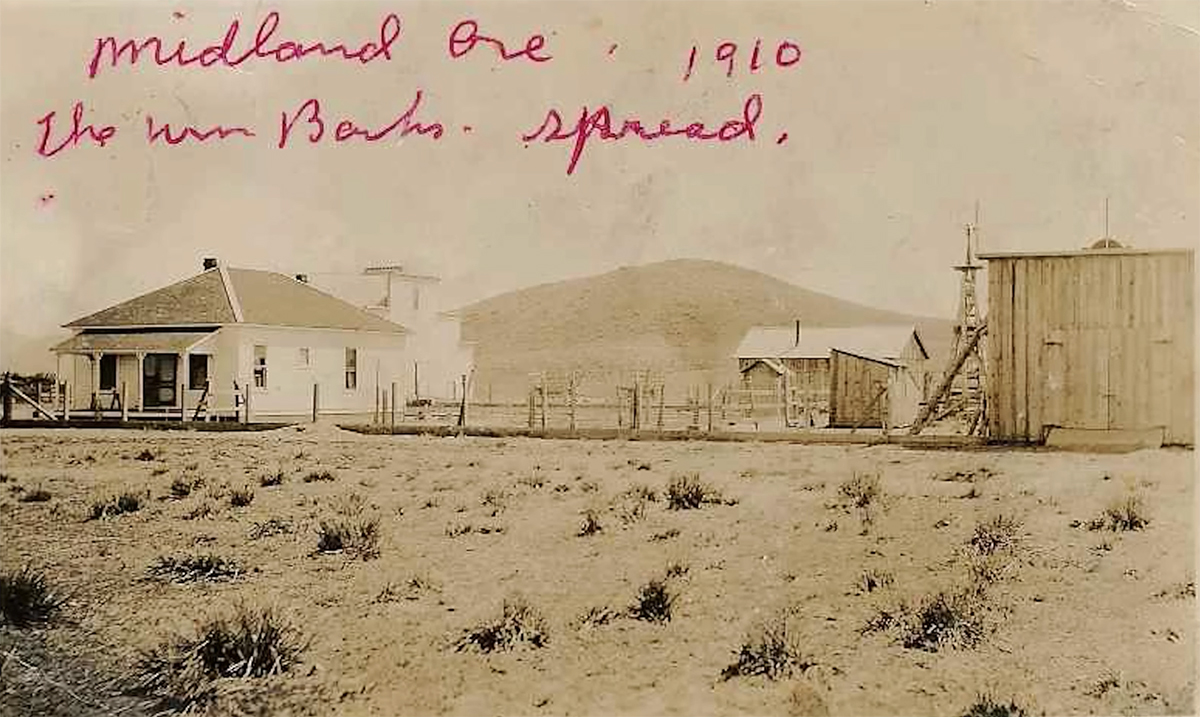 Midland Ore. 1910
The Wm Barks. spread.